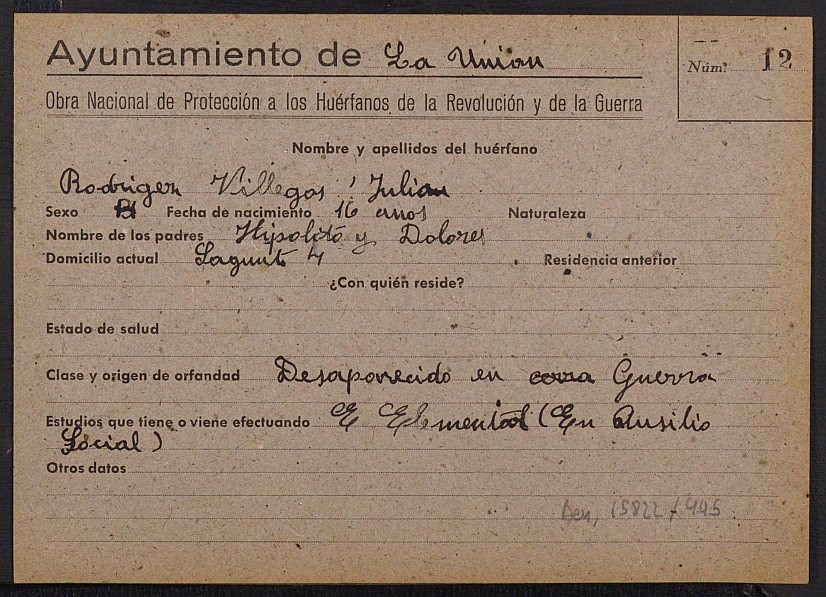 Ayuntamiento de La Union
Núm. 12
Obra Nacional de Protección a los Huérfanos de la Revolución y de la Guerra
Nombre y apellidos del huérfano
Rodriguez Villegas, Julian
Sexo Fecha de nacimiento 16 anos Naturaleza
Nombre de los padres Hipolito y Dolores
Domicilio actual Sagunto 4 Residencia anterior
¿Con quién reside?
Estado de salud
Clase y origen de orfandad Desaparecido en Guerra
Estudios que tiene o viene efectuando E Elemental (En Ausilio
Social)
Otros datos
15822/445